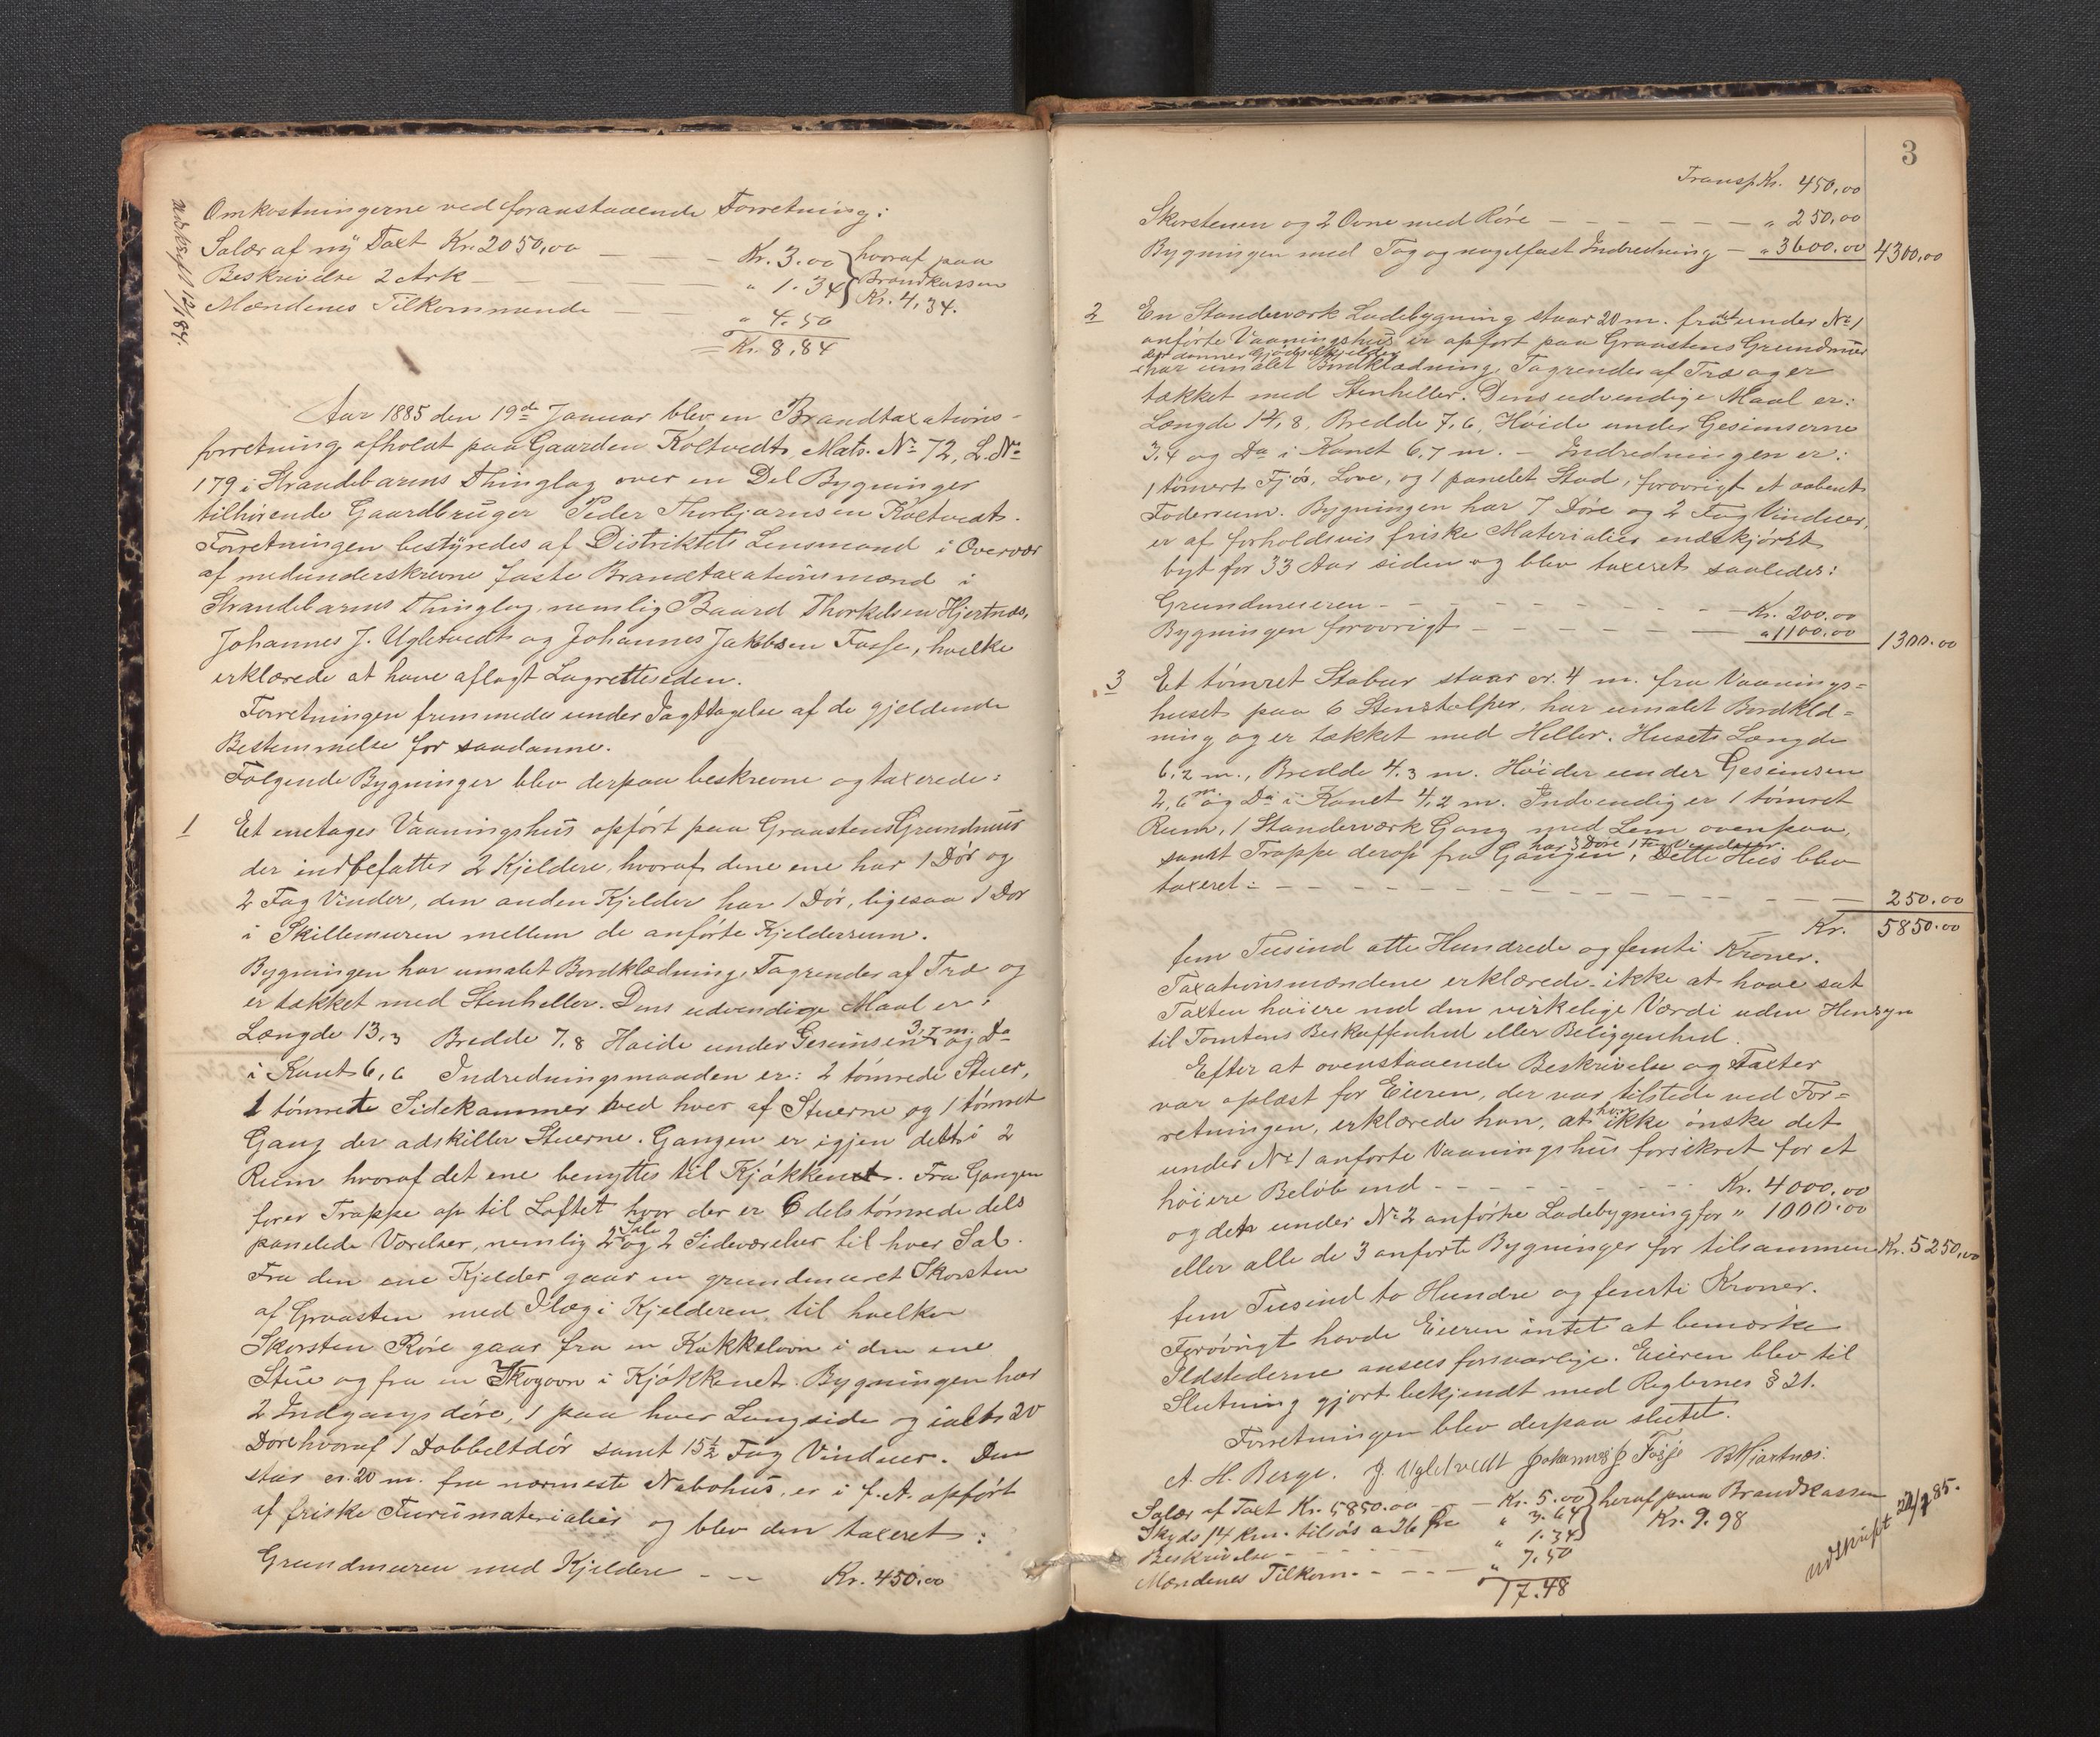 Omkostningerne ved foranstaaende Forretning:
Salær af ny Taxt Kr. 2050,00 – – – Kr. 3.00 } hvoraf paa
Beskrivelse 2 Ark – – – – – " 1.34 } Brandkassen
Mændenes Tilkommende " 4.50 Kr. 4,34.
= Kr. 8,84
udskrift 12/1 84.
Aar 1885 den 19de Januar blev en Brandtaxations-
forretning afholdt paa Gaarden Koltvedt, Matr. No 72, L. No
179 i Strandebarms Thinglag over en Del Bygninger
tilhørende Gaardbruger Peder Thorbjørnsen Koltvedt.
Forretningen bestyredes af Distriktets Lensmand i Overvær
af medunderskrevne faste Brandtaxationsmænd i
Strandebarms Thinglag, nemlig Baard Thorkelsen Hjertnæs,
Johannes J. Ugletvedt og Johannes Jakobsen Fosse, hvilke
erklærede at have aflagt Lagretteseden.
Forretningen fremmedes under Iagttagelse af de gjeldende
Bestemmelse for saadanne.
Følgende Bygninger blev derpaa beskrevne og taxerede:
1 Et enetages Vaaningshus opført paa Graastens Grundmur
der indbefatter 2 Kjeldere, hvoraf dene ene har 1 Dør og
2 Fag Vinder, den anden Kjelder har 1 Dør, ligesaa 1 Dør
i Skillemuren mellem de anførte Kjelderrum.
Bygningen har umalet Bordklædning, Tagrender af Træ og
er takket med Stenheller. Dens udvendige Maal er:
Længde 13,3 Bredde 7,8 Høide under Gesimsen 3,7 m. og Do
i Kant 6,6 Indredningsmaaden er: 2 tømrede Stuer,
1 tømrete Sidekammer ved hver af Stuerne og 1 tømret
Gang der adskiller Stuerne. Gangen er igjen delt i 2
Rum hvoraf det ene benyttes til Kjøkkenet. Fra Gangen
fører Trappe op til Loftet hvor der er 6 dels tømrede dels
panelede Værelser, nemlig 2 Sale og 2 Sideværelser til hver Sal.
Fra den ene Kjelder gaar en grundmuret Skorsten
af Graasten med Ilæg i Kjelderen, til hvilken
Skorsten Røre gaar fra en Kakkelovn i den ene
Stue og fra en Kogovn i Kjøkkenet. Bygningen har
2 Indgangsdøre, 1 paa hver Langside og ialt 20
Døre hvoraf 1 Dobbeltdør samt 15½ Fag Vinduer. Den
staar cr. 20 m. fra nærmeste Nabohus, er i f. A. opført
af friske Furumaterialier og blev den taxeret:
Grundmuren med Kjeldere – – Kr. 450.00
3
Transp. Kr. 450,00
Skorstenen og 2 Ovne med Røre – – – – – " 250,00
Bygningen med Tag og nagelfast Indredning – " 3600.00 4300,00
2 En Standerværk Ladebygning staar 20 m. fra det under No 1
anførte Vaaningshus er opført paa Graastens Grundmur
der danner Gjødselkjelder
har umalet Bordklædning, Tagrender af Træ og er
takket med Stenheller. Dens udvendige Maal er:
Længde 14,8, Bredde 7,6, Høide under Gesimserne
3,4 og Do i Kanet 6,7 m. – Indredningen er:
1 tømert Fjøs, Love, og 1 panelet Stad, forøvrigt et aabent
Foderrum. Bygningen har 7 Døre og 2 Fag Vinduer,
er af forholdsvis friske Materialier endskjønt
bygt for 33 Aar siden og blev taxeret saaledes:
Grundmueren – – – – – Kr. 200.00
Bygningen forøvrigt – – – – " 1100.00 1300.00
3 Et tømret Stabur staar cr. 4 m. fra Vaanings=
huset paa 6 Stenstolper, har umalet Bordklæd=
ning og er takket med Heller. Husets Længde
6,2 m., Bredde 4.3 m. Høider under Gesimsen
2,6 m og Do i Kanet 4,2 m. Indvendig er 1 tømret
Rum, 1 Standerværk Gang med Lem ovenpaa,
har 3 Døre 1 Fag Vinduer.
samt Trappe derop fra Gangen, Dette Hus blev
taxeret: – – – – – – 250.00
Kr. 5850.00
fem Tusind otte Hundrede og femti Kroner.
Taxationsmændene erklærede ikke at have sat
Taxten høiere end den virkelige Værdi uden Hensyn
til Tomtens Beskaffenhed eller Beliggenhed.
Efter at ovenstaaende Beskrivelse og Taxter
var oplæst for Eieren, der var tilstede ved For=
retningen, erklærede han, at han ikke ønske det
under No 1 anførte Vaaningshus forsikret for et
høiere Beløb end – – – – Kr. 4000.00
og den under No 2 anførte Ladebygning for " 1000.00
eller alle de 3 anførte Bygninger for tilsammen Kr. 5250,00
fem Tusind to Hundre og femti Kroner.
Forøvrigt havde Eieren intet at bemærke
Ildstederne ansees forsvarlige. Eieren blev til
Slutning gjort bekjendt med Reglernes § 21.
Forretningen blev derpaa sluttet.
A. H. Berge. J. Ugletvedt Johannes J. Fosse B. Hjartnæs.
Salær af Taxt Kr. 5850.00 – – Kr. 5.00 } heraf paa Brandkassen
Skyds 14 km. tilsøs a 26 Øre " 3.64 } Kr. 9.98
Beskrivelse – – – " 1.34 }
Mændenes Tilkom. – – – " 7.50
17.48
udskrift 22/7 85.